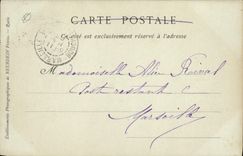 CARTE POSTALE
Ce côté est exclusivement réservé à l'adresse
Mademoiselle
Poste restante
Marseille
Établissements Photographiques de NEURDEIN Frères. - Paris
MARSEILLE